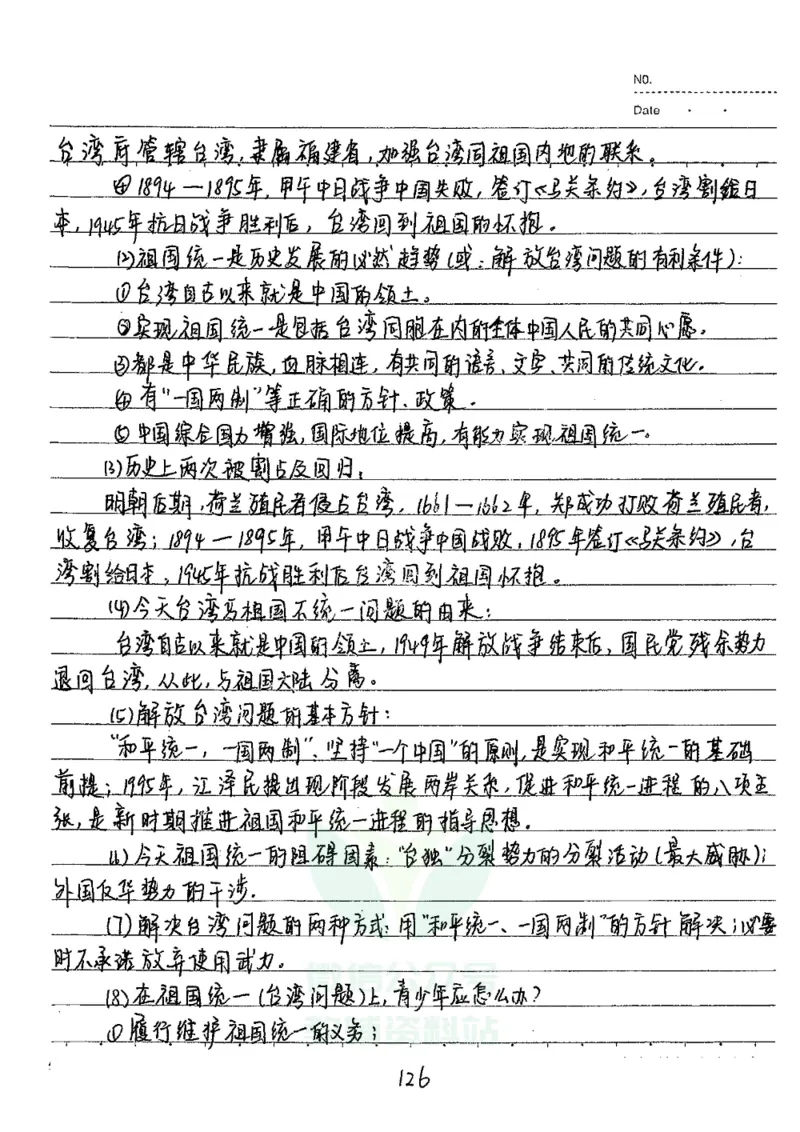 NO.
Date
台湾府管辖台湾,隶属福建省,加强台湾同祖国内地的联系。
④1894—1895年,甲午中日战争中国失败,签订《马关条约》,台湾割给日
本,1945年抗日战争胜利后,台湾回到祖国的怀抱。
(2)祖国统一是历史发展的必然趋势(或:解放台湾问题的有利条件):
①台湾自古以来就是中国的领土。
②实现祖国统一是包括台湾同胞在内的全体中国人民的共同心愿。
③都是中华民族,血脉相连,有共同的语言、文字、共同的传统文化。
④有"一国两制"等正确的方针、政策。
⑤中国综合国力增强,国际地位提高,有能力实现祖国统一。
(3)历史上两次被割占及回归:
明朝后期,荷兰殖民者侵占台湾,1661—1662年,郑成功打败荷兰殖民者,
收复台湾;1894—1895年,甲午中日战争中国战败,1895年签订《马关条约》,台
湾割给日本,1945年抗战胜利后台湾回到祖国怀抱。
(4)今天台湾与祖国不统一问题的由来:
台湾自古以来就是中国的领土,1949年解放战争结束后,国民党残余势力
退回台湾,从此,与祖国大陆分离。
(5)解放台湾问题的基本方针:
"和平统一,一国两制"、坚持"一个中国"的原则,是实现和平统一的基础
前提;1995年,江泽民提出现阶段发展两岸关系,促进和平统一进程的八项主
张,是新时期推进祖国和平统一进程的指导思想。
(6)今天祖国统一的阻碍因素:"台独"分裂势力的分裂活动(最大威胁);
外国反华势力的干涉.
(7)解决台湾问题的两种方式:用"和平统一、一国两制"的方针解决;必要
时不承诺放弃使用武力。
(8)在祖国统一(台湾问题)上,青少年应怎么办?
①履行维护祖国统一的义务;
微信公众号
教辅资料站
126